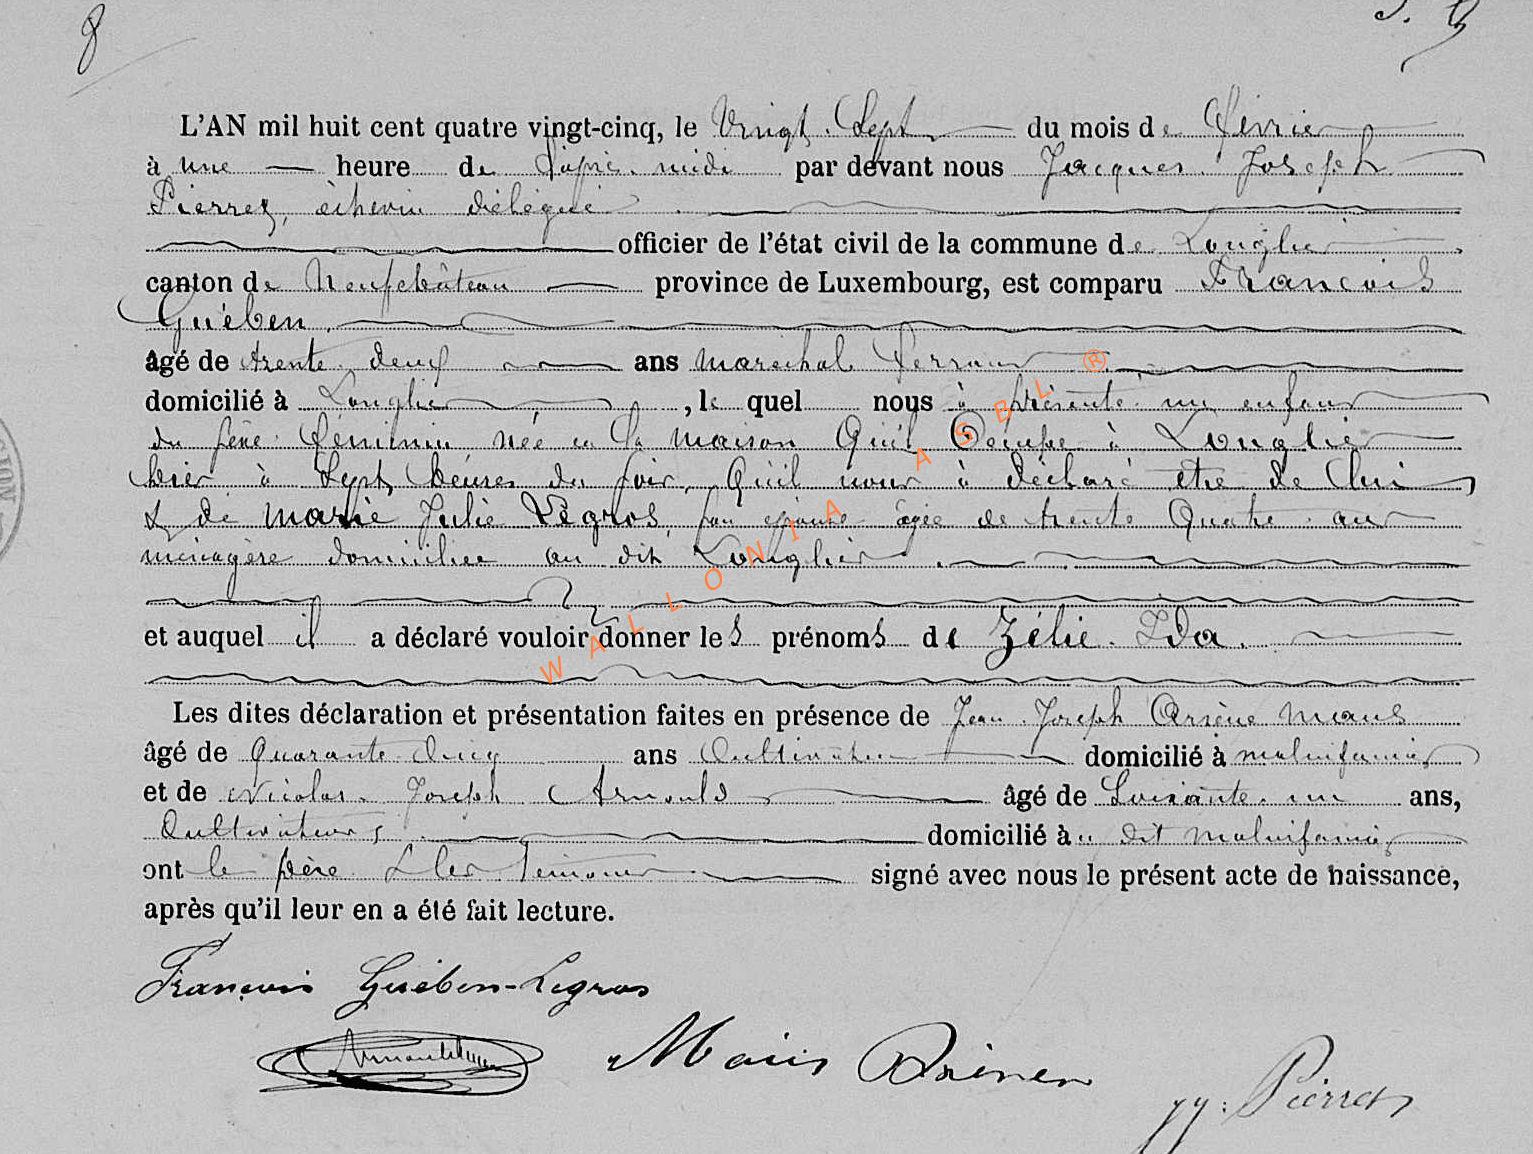 8
L'AN mil huit cent quatre vingt-cinq, le Vingt. Sept du mois de Février
à une heure de d'après. midi par devant nous Jacques. Joseph
Pierret, échevin délégué
officier de l'état civil de la commune de Longlier
canton de Neufchâteau province de Luxembourg, est comparu François
Guében,
âgé de trente. deux ans maréchal. Ferrant
domicilié à Longlier, le quel nous à présenté un enfant
du sexe Féminin née en la maison Qu'il Occupe à Longlier
hier à Sept heures du soir, Qu'il nous à déclaré être de lui
& de Marie Julie Legros, son épouse âgée de trente Quatre ans
ménagère domiciliée au dit Longlier
et auquel il a déclaré vouloir donner les prénoms de Zélie. Ida.
Les dites déclaration et présentation faites en présence de Jean. Joseph Arsène Maus
âgé de Quarante cinq ans Cultivateur domicilié à malvifamie
et de Nicolas. Joseph Arnould âgé de Soixante. un ans,
Cultivateurs domicilié à u dit malvifamie,
ont le père & les témoins signé avec nous le présent acte de naissance,
après qu'il leur en a été fait lecture.
François Guében-Legros
Maus Arsène
JJ: Pierret
WALLONIA ASBL ®